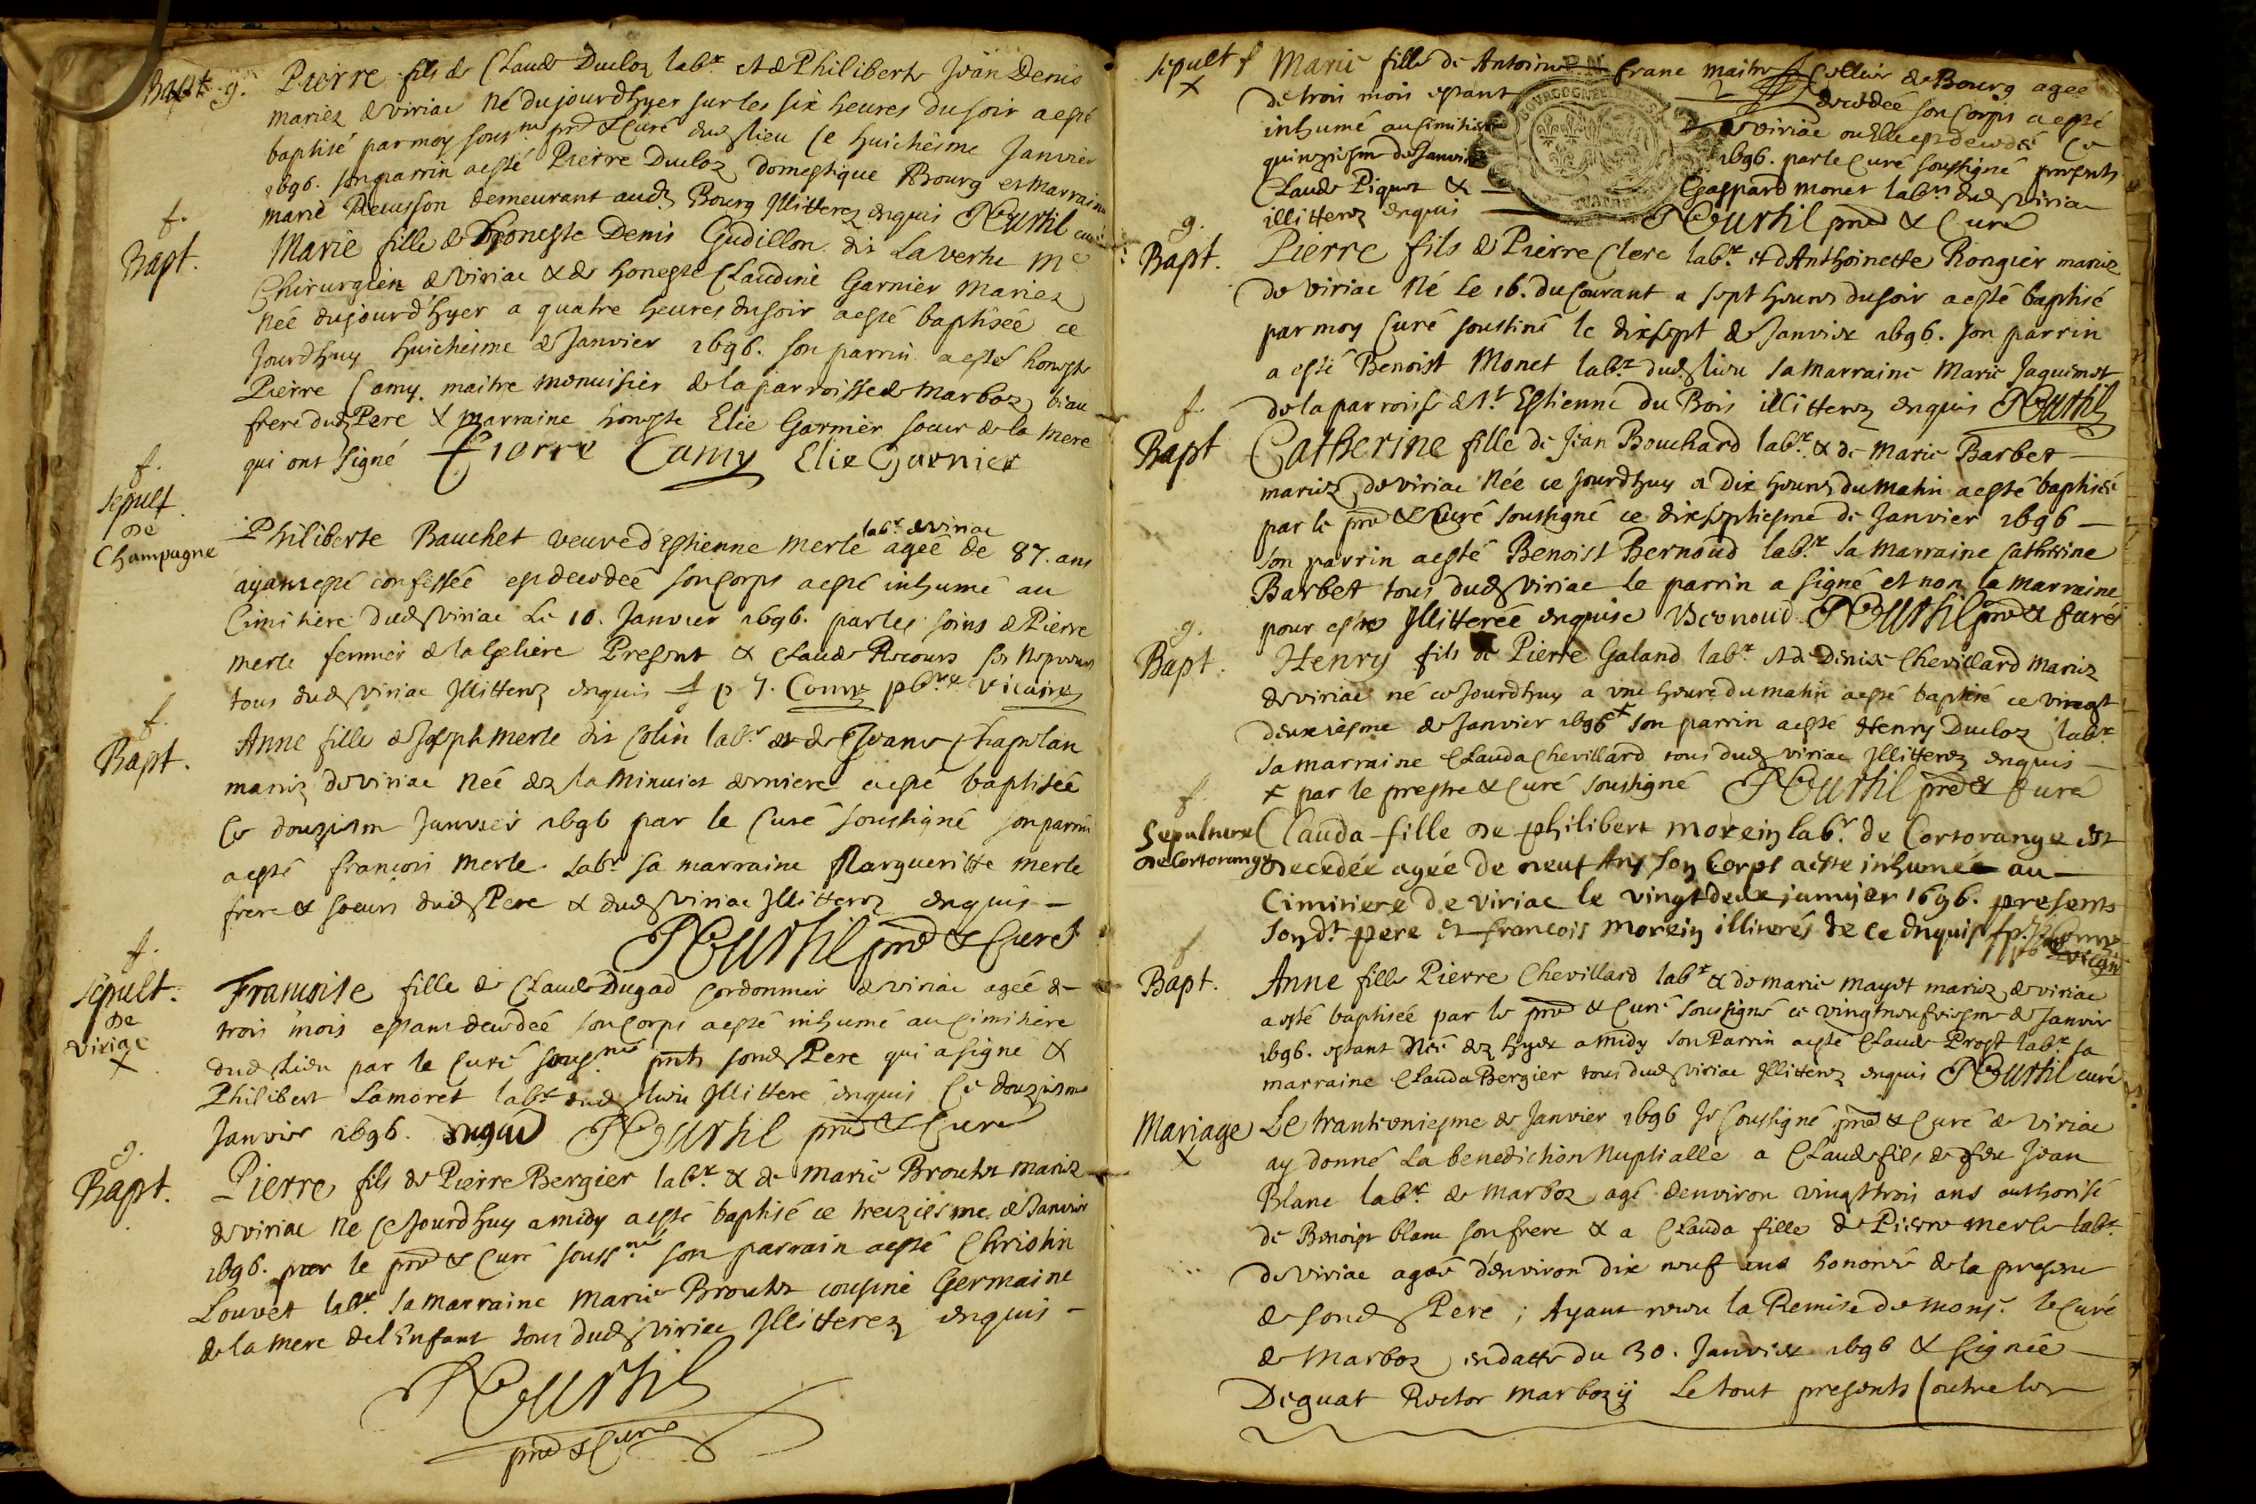 Bapt. g. Pierre fils de Claude Ducloz labr. et de Philiberte Jean Denis
mariez de viriac né du jourdhyer sur les six heures du soir a esté
baptisé par moy sousné pre & Curé dud. lieu ce huichiesme Janvier
1696. son parrin a esté Pierre Ducloz domestique Bourg et marraine
marie demeurant aud. Bourg Illitterez enquis
f.
Bapt. Marie fille de honneste Denis Gudillon dit Laverhe Me
Chirurgien de viriac & de honneste Claudine Garnier mariez
Née du jourd'hyer a quatre heures du soir a esté baptisée ce
Jourdhuy huichiesme de Janvier 1696. son parrin a esté honneste
Pierre Camy maitre menuisier de la parroisse de marboz beau
frere dud. Pere & marraine honneste Elie Garnier soeur de la mere
qui ont signé Pierre Camy Elie Garnier
f.
sepult.
de
Champagne
Philiberte Bauchet veuve d'Estienne merle labr. de viriac ageé de 87. ans
ayant esté confessée est decedeé son corps a esté inhumé au
Cimitiere dud. viriac Le 10. Janvier 1696. par les soins de Pierre
merle fermier de la Present & Claude Recours ses Nepveux
tous dud. viriac Illitterez enquis vicaire
f.
Bapt. Anne fille de Joseph merle dit Colin labr. et de Jeanne Chapelan
mariez de viriac Neé dez la Minuict derniere a esté baptiseé
Ce douziesm Janvier 1696 par le Curé soussigné son parrin
a esté françois merle labr. sa marraine Margueritte merle
frere & soeur dud. Pere & dud. viriac Illitterez enquis
pre & Curé
f.
sepult.
de
viriac
x
Francoise fille de Claude Dugad Cordonnier de viriac ageé de
trois mois estant decedeé son corps a esté inhumé au Cimitiere
dud. Lieu par le Curé sousné pnts sond. Pere qui a signé &
Philibert Lamoret labr. dud. lieu Illitteré enquis Ce douziesme
Janvier 1696. Dugad pre & Curé
g.
Bapt. Pierre fils de Pierre Bergier labr. & de Marie Brouher mariez
de viriac né ce Jourdhuy a midy a esté baptisé ce treiziesme de Janvier
1696. par le pre & Curé soussné son parrain a esté Christin
Louvet labr. sa marraine Marie Brouher cousine Germaine
de la mere de l'Enfant tous dud. viriac Illitterez enquis
pre & Curé
sepult f
x
Marie fille de Antoine franc maitre de Bourg agee
de trois mois estant decedeé son Corps a esté
inhumé au cimitiere de viriac ou Elle est decedeé Ce
quinziesme de Janvier 1696. par le Curé soussigné presents
Claude Piquet & Gaspard monet labrs dud. viriac
illitterez enquis pre & Curé
g.
Bapt. Pierre fils de Pierre Clerc labr. et d'Anthoinette Rongier mariez
de viriac Né Le 16. du Courant a sept heures du soir a esté baptisé
par moy Curé soussiné le dixsept de Janvier 1696. son parrin
a esté Benoist Monet labr. dud. lieu sa marraine Marie Jaquemet
de la parroisse de St. Estienne du Bois illitterez enquis
f.
Bapt Catherine fille de Jean Bouchard labr. & de Marie Barbet
mariez de viriac Née ce jourdhuy a dix heures du matin a esté baptisée
par le pre & Curé soussigné ce dixseptiesme de Janvier 1696
son parrin a esté Benoist Bernoud labr. sa marraine Catherine
Barbet tous dud. viriac le parrin a signé et non la marraine
pour estre Illitterée enquise Bernoud pre & Curé
g.
Bapt. Henry fils de Pierre Galand labr. et de Denise Chevillard mariez
de viriac né ce Jourdhuy a une heure du matin a esté baptisé ce vingt
deuxiesme de Janvier 1696 x son parrin a esté Henry Ducloz labr.
sa marraine Clauda Chevillard tous dud. viriac Illitterez enquis
x par le prestre & Curé soussigné pre & Curé
f.
Sepulture
de Cortorange
Clauda fille de philibert morein labr. de Cortorange est
decedée agée de neuf Ans son Corps a este inhumée au
Cimitiere de viriac le vingtdeux janvier 1696. presents
sond. pere et francois morein illiterés de ce enquis
f
Bapt. Anne fille Pierre Chevillard labr. & de marie mayet mariez de viriac
a esté baptiseé par le pre & Curé soussigné ce vingtneufviesme de Janvier
1696. estant Née dez hyer a midy son Parrin a esté Claude Prost labr. sa
marraine Clauda Bergier tous dud. viriac Illitterez enquis curé
Mariage
x
Le trantuniesme de Janvier 1696 Je soussigné pre & Curé de viriac
ay donné la benediction Nuptialle a Claude fils de feu Jean
Blanc labr. de Marboz agé d'environ vingttrois ans authorisé
de Benoist blanc son frere & a Clauda fille de Pierre merle labr.
de viriac agée d'environ dix neuf ans honorée de la presence
de sond. Pere ; Ayant receu la Remise de Monsr. le Curé
de Marboz en datte du 30. Janvier 1696 & signée
Deguat Rector marbozij Le tout presents (outre les